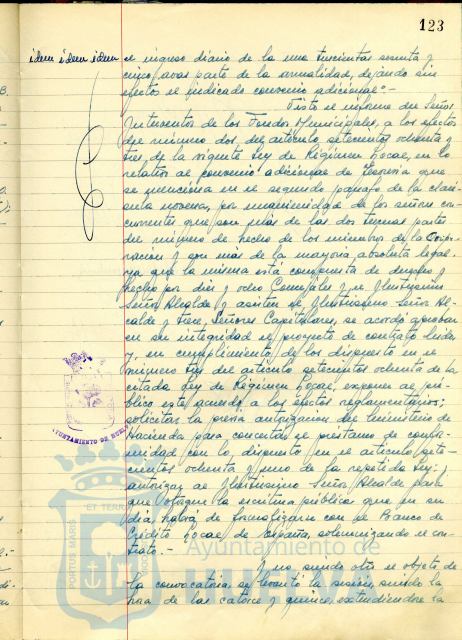 123
idem idem idem
el ingreso diario de la una trescientas sesenta y
cinco avas parte de la anualidad, dejando sin
efectos el indicado convenio adicional.-
Visto el informe del Señor
Interventor de los Fondos Municipales, a los efectos
del número dos, del artículo setecientos ochenta y
tres de la vigente Ley de Régimen Local, en lo
relativo al convenio adicional de Tesorería que
se menciona en el segundo párrafo de la cláu-
sula novena, por unanimidad de los señores con-
currentes que son más de las dos terceras partes
del número de hecho de los miembros de la Corpo-
ración y con más de la mayoría absoluta legal,
ya que la misma está compuesta de derecho y
hecho por diez y ocho Concejales y el Ilustrísimo
Señor Alcalde y asisten el Ilustrísimo Señor Al-
calde y trece Señores Capitulares, se acordó aprobar
en su integridad el proyecto de contrato leído
y, en cumplimiento de los dispuesto en el
número tres del artículo setecientos ochenta de la
citada Ley de Régimen Local, exponer al pú-
blico este acuerdo a los efectos reglamentarios;
solicitar la previa autorización del Ministerio de
Hacienda para concertar el préstamo de confor-
midad con lo dispuesto en el artículo sete-
cientos ochenta y uno de la repetida Ley; y
autorizar al Ilustrísimo Señor Alcalde para
que otorgue la escritura pública que en su
día habrá de formalizarse con el Banco de
Crédito Local de España, solemnizando el con-
trato.-
Y no siendo otro el objeto de
la convocatoria, se levantó la sesión, siendo la
hora de las catorce y quince, extendiéndose la
AYUNTAMIENTO DE HUELVA
ET TERRAE
PORTUS MARIS
Ayuntamiento de
HUELVA